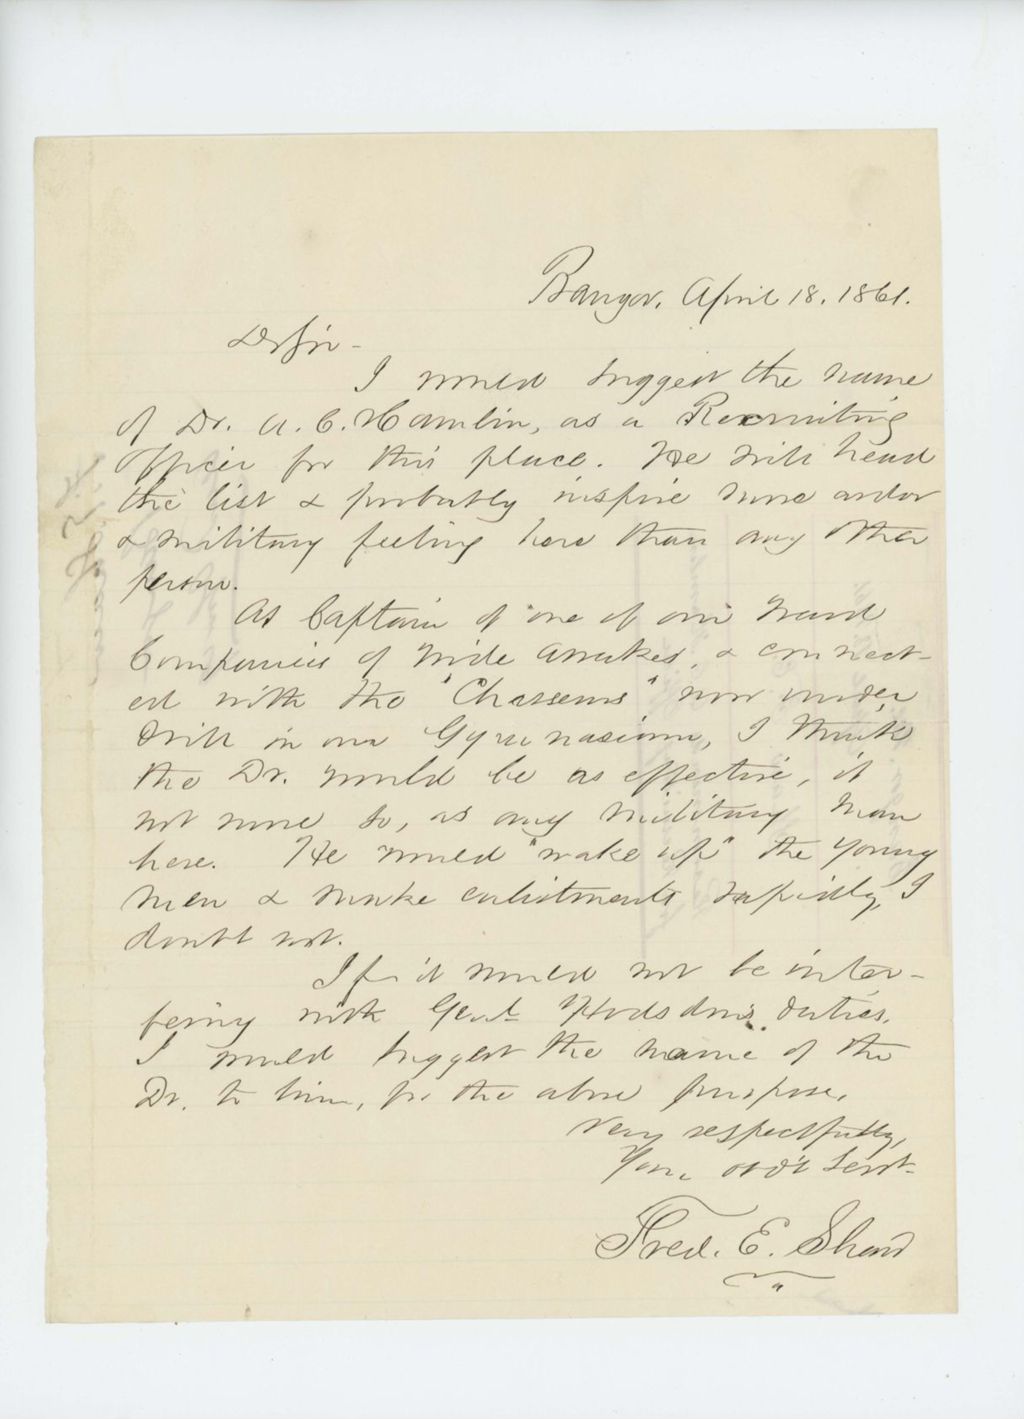 Bangor, April 18, 1861.
Dr Sir -
I would suggest the name
of Dr. A. C. Hamlin, as a Recruiting
Officer for this place. He will head
the list & probably inspire more ardor
& military feeling here than any other
person.
As Captain of one of our Ward
Companies of Wide Awakes, & connect-
ed with the "Chasseurs" now under
drill in our Gymnasium, I think
the Dr. would be as effective, if
not more so, as any military man
here. He would "wake up" the young
men & make enlistments rapidly, I
doubt not.
If it would not be inter-
fering with Genl. Hodsdon's duties,
I would suggest the name of the
Dr. to him, for the above purpose.
Very respectfully,
Your obd't Servt-
Fred. E. Shaw